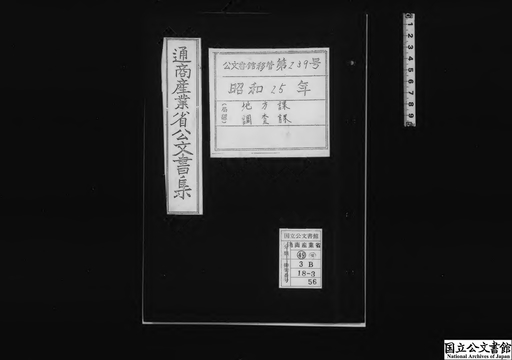 通商産業省公文書集
公文書館移管第219号
昭和25年
地方課
調査課
国立公文書館
通商産業省
3 B
18-3
56
国立公文書館
National Archives of Japan